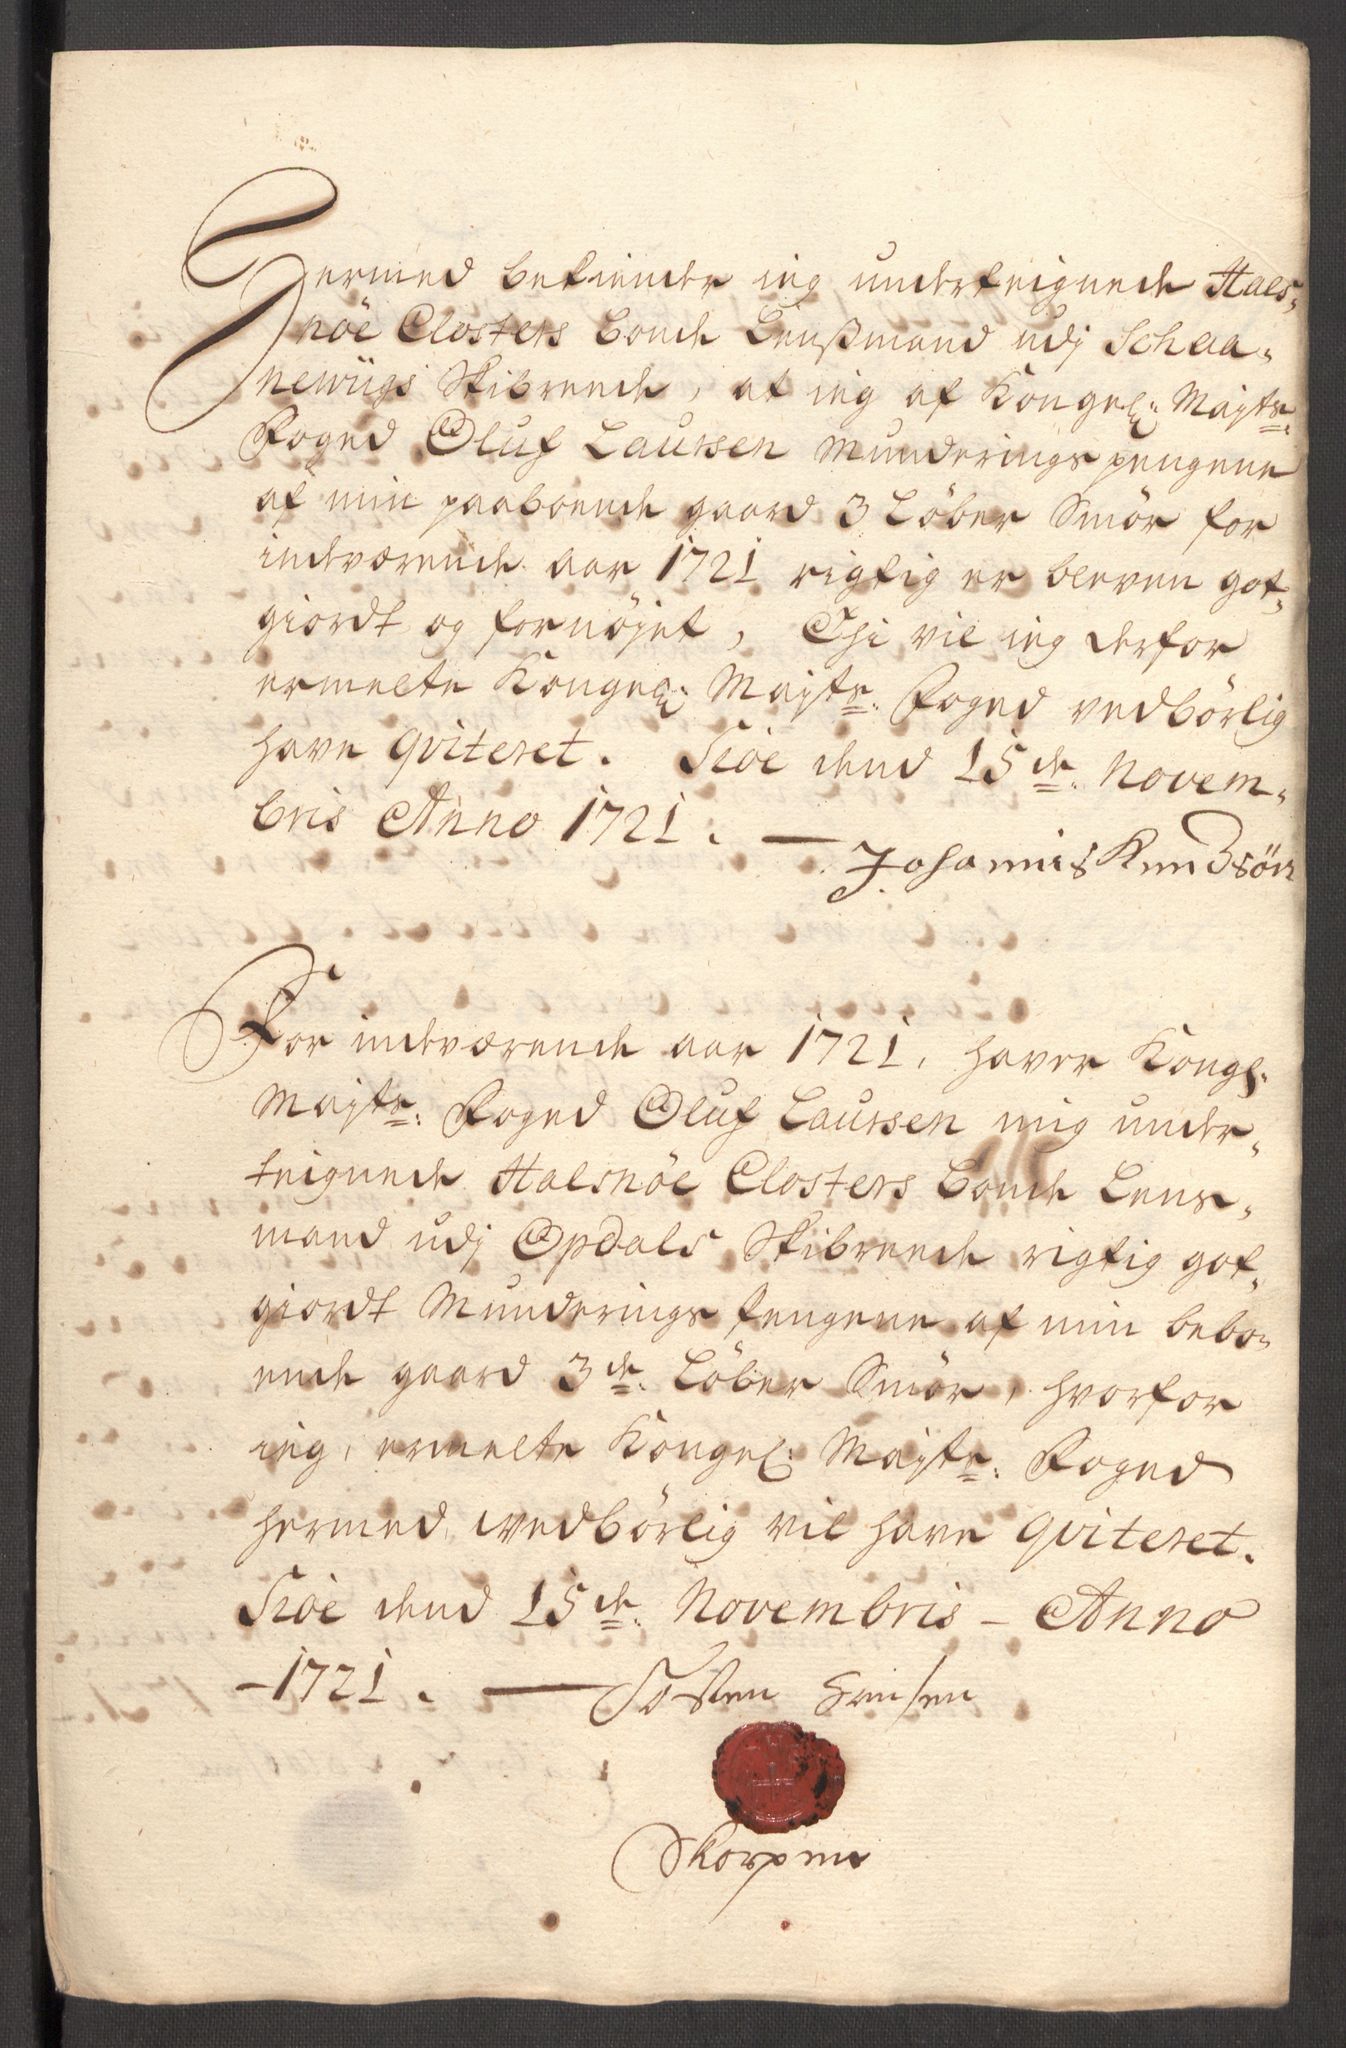 Hermed bekiender ieg underteignede Hals-
nöe Closters bonde Lenßmand udj Schaa-
newiigs Skibrende, at ieg af Kongel: Mayts:
Foged Oluf Laursen Munderings pengene
af min paaboende gaard 3 Löber Smör for
indværende aar 1721 rigtig er bleven got-
giordt og fornöjet, Thi vil ieg derfor
ermelte Kongel: Mayts: Foged vedbörlig
have qviteret. Siöe dend 15de. Novem-
bris Anno 1721. —
Johannis Knudsön
For indværende aar 1721, haver Kongl:
Mayts: Foged Oluf Laursen mig under-
teignede Halsnöe Closters bonde Lens-
mand udj Opdals Skibrende rigtig got-
giordt Munderings pengene af min bebo-
ende gaard 3de. Löber Smör, hvorfor
ieg, ermelte Kongel: Mayts: Foged
hermed vedbörlig vil have qviteret.
Siöe dend 15de. Novembris – Anno
– 1721. — Tosten
Skorpen